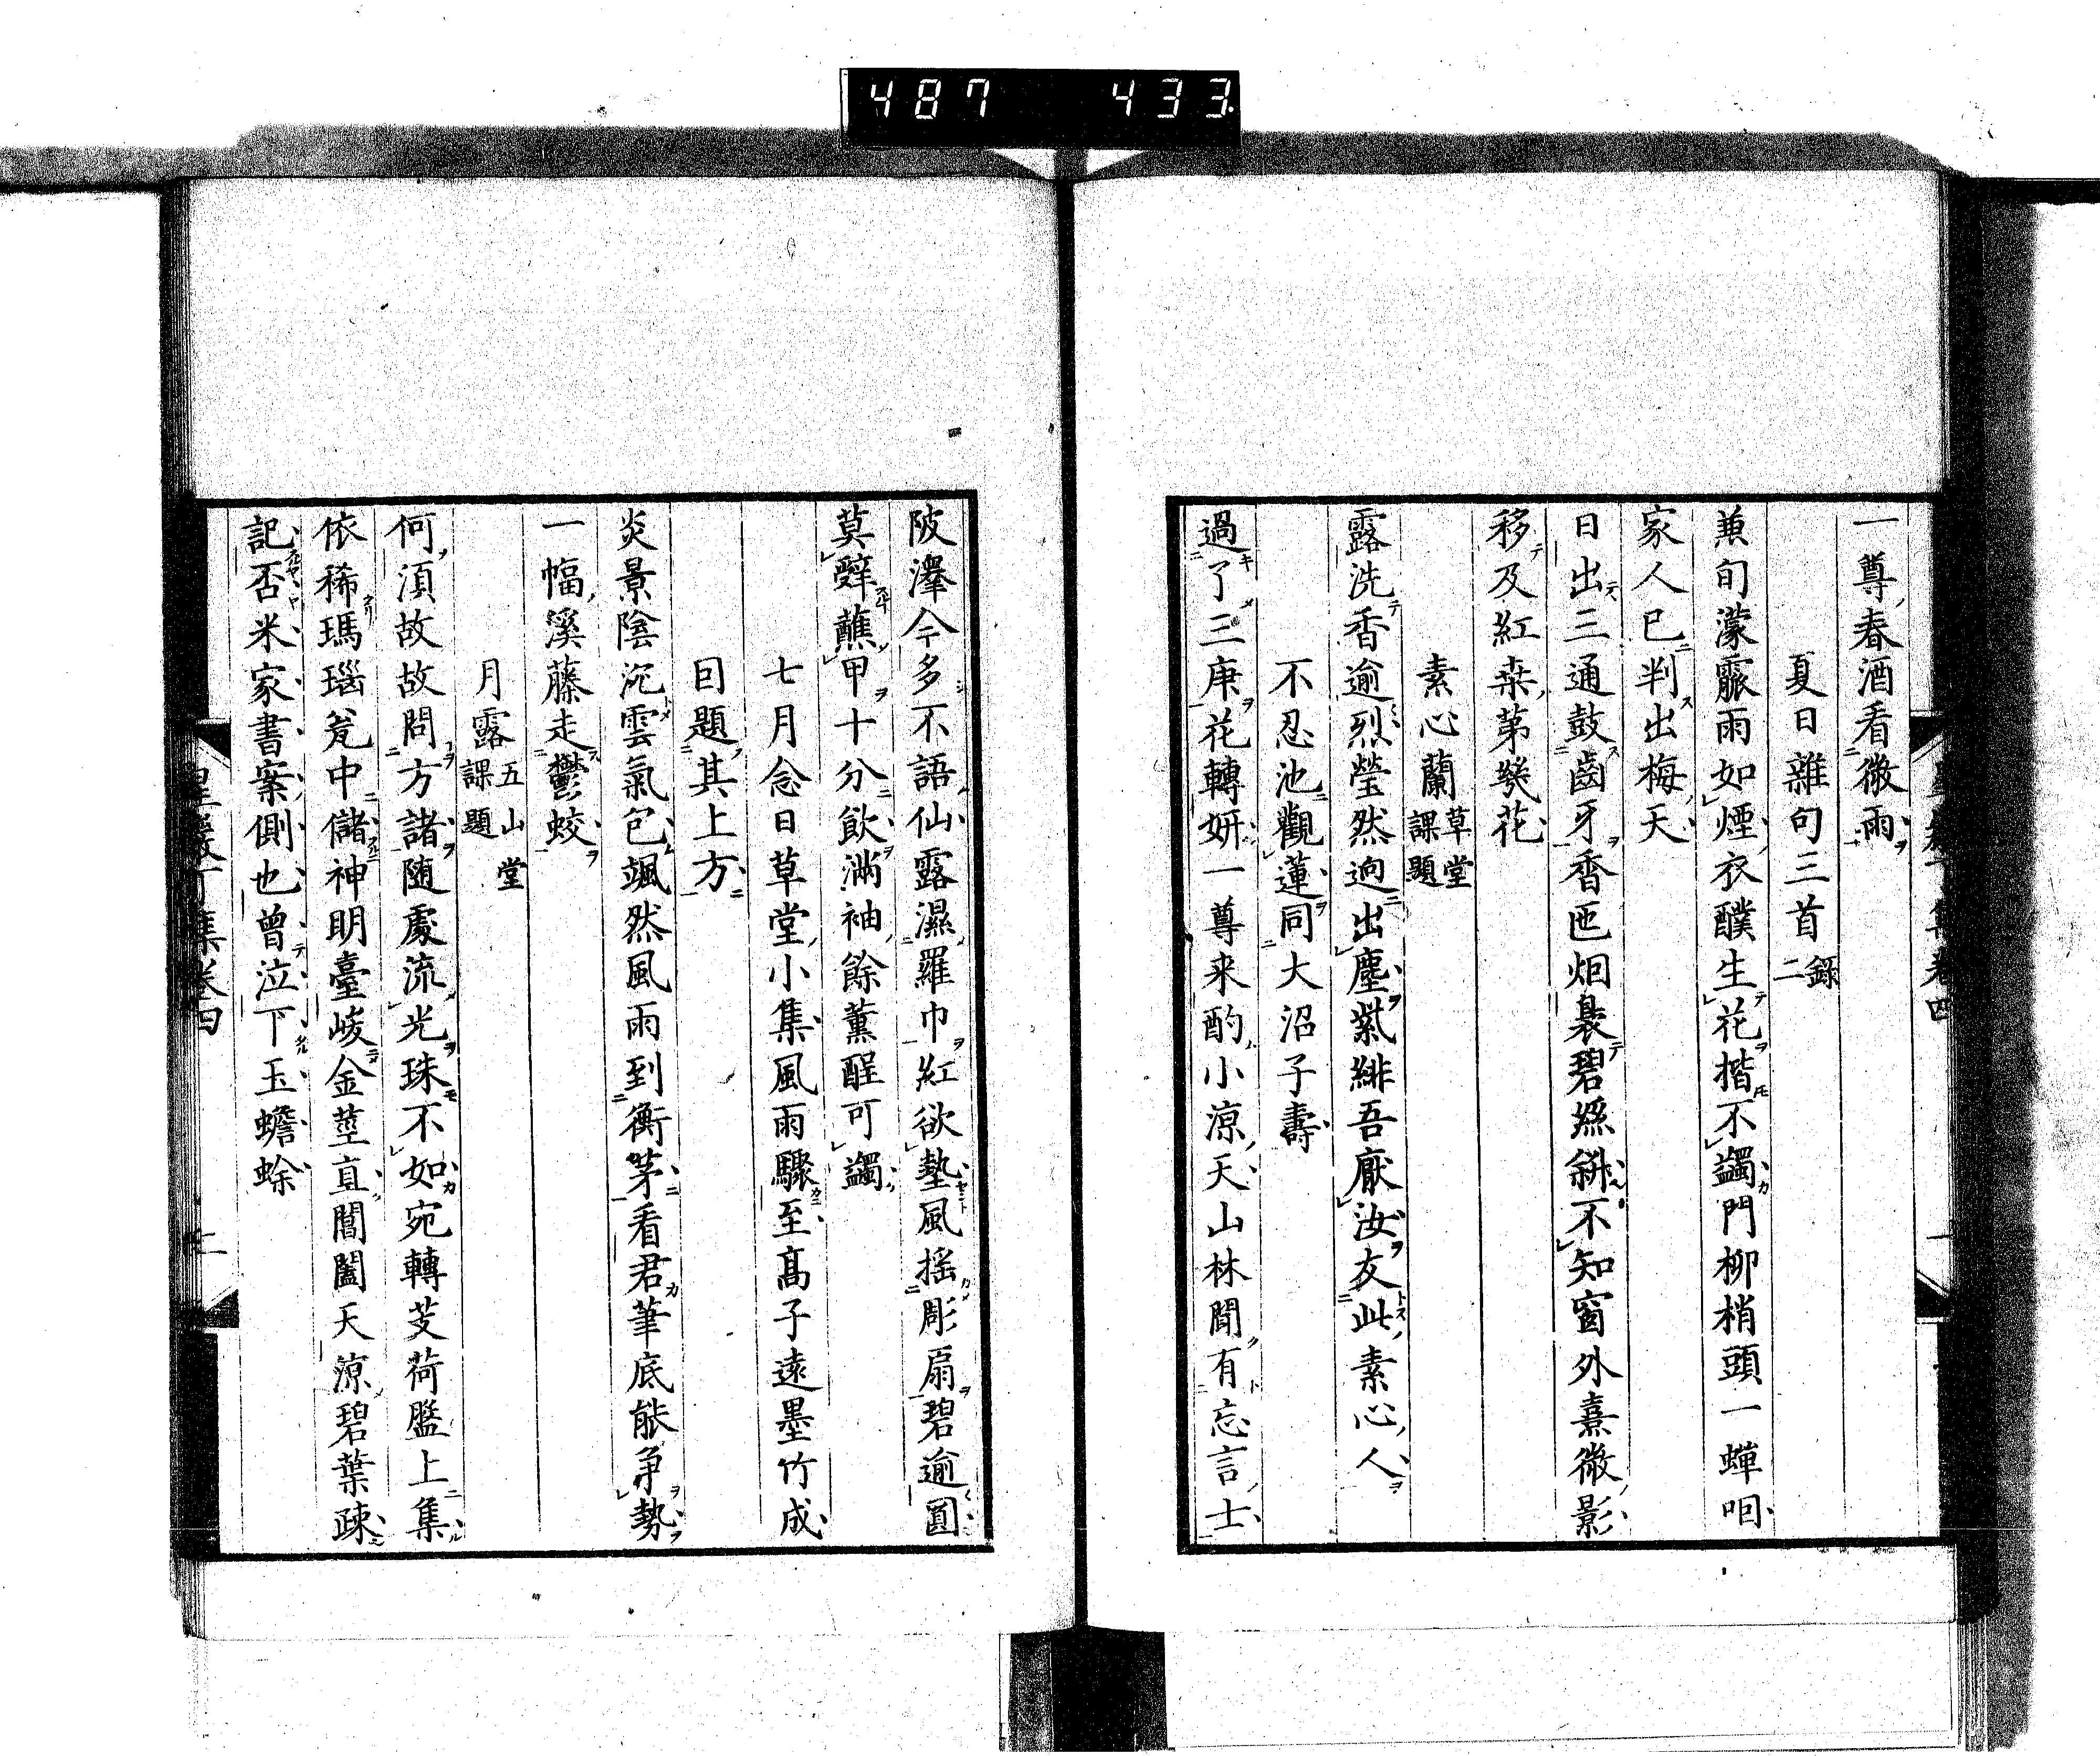 487 433
一尊春酒看微雨
夏日雜句三首錄二
兼旬濛霢雨如煙衣醭生花揩不蠲門柳梢頭一蟬咽
家人已判出梅天
日出三通鼓齒牙香匜烟裊碧絲斜不知窗外熹微影
移及紅桒第幾花
素心蘭草堂課題
露洗香逾烈瑩然逈出塵紫緋吾厭汝友此素心人
不忍池觀蓮同大沼子壽
過了三庚花轉妍一尊来酌小涼天山林聞有忘言士
陂澤今多不語仙露濕羅巾紅欲墊風搖彫扇碧逾圓
莫辭蘸甲十分飲滿袖餘薰酲可蠲
七月念日草堂小集風雨驟至高子遠墨竹成
囙題其上方
炎景陰沱雲氣包颯然風雨到衡茅看君筆底能爭勢
一幅溪藤走鬱蛟
月露五山堂課題
何須故故問方諸随處流光珠不如宛轉芰荷盤上集
依稀瑪瑙瓮中儲神明臺峻金莖直閶闔天涼碧葉疎
記否米家書案側也曾泣下玉蟾蜍
集卷四
二